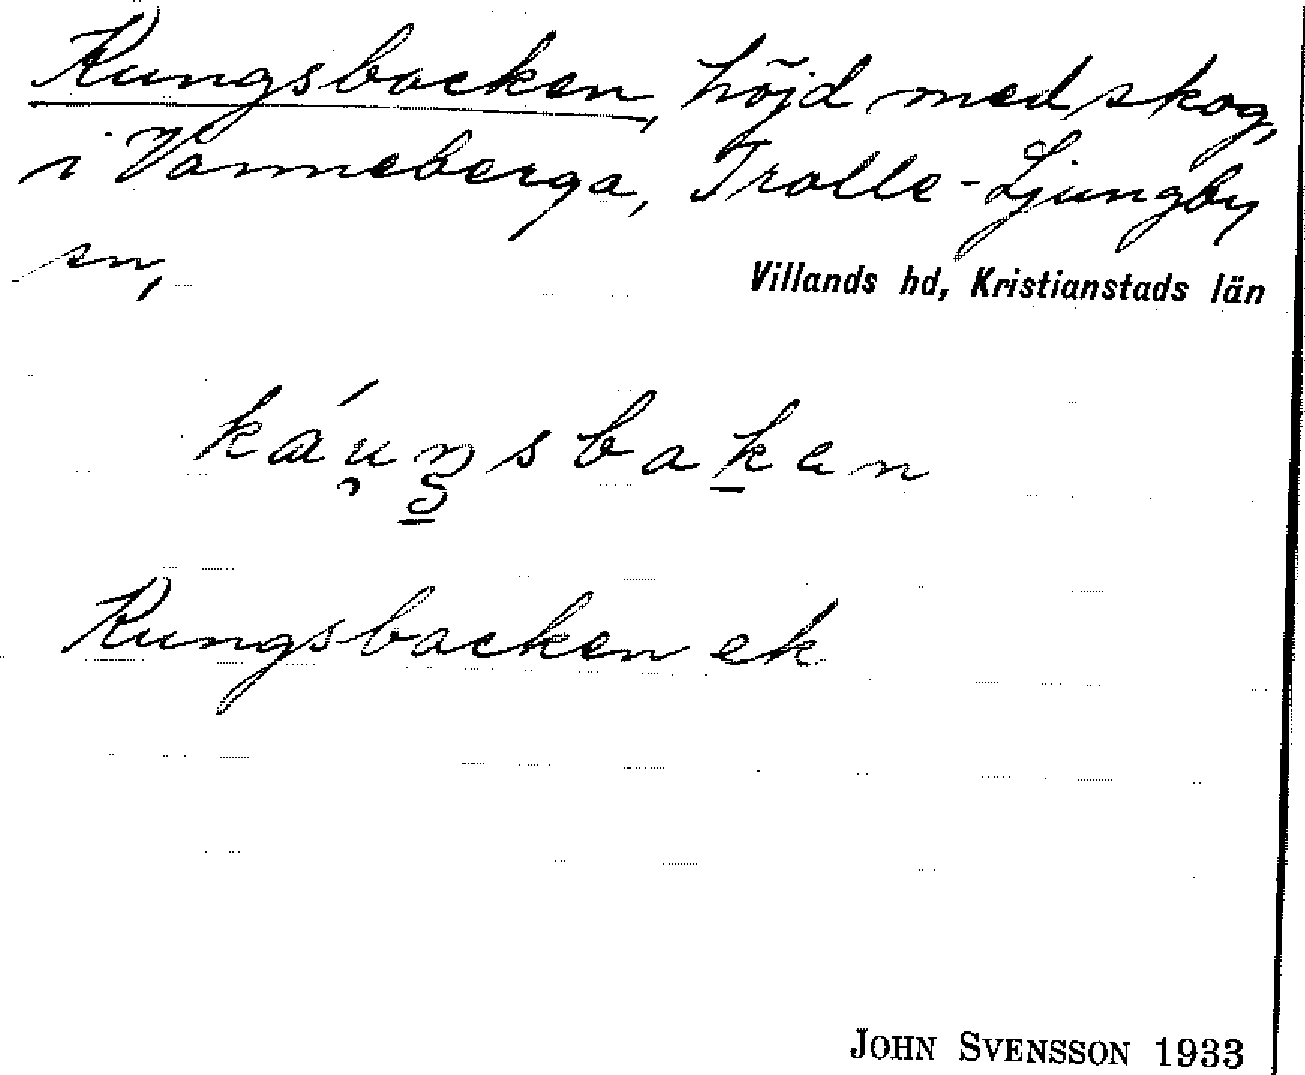 Kungsbacken, höjd med skog,
i Vanneberga, Trolle-Ljungby
sn,
Villands hd, Kristianstads län
káu̯ŋsbaken
Kungsbacken ek
JOHN SVENSSON 1933